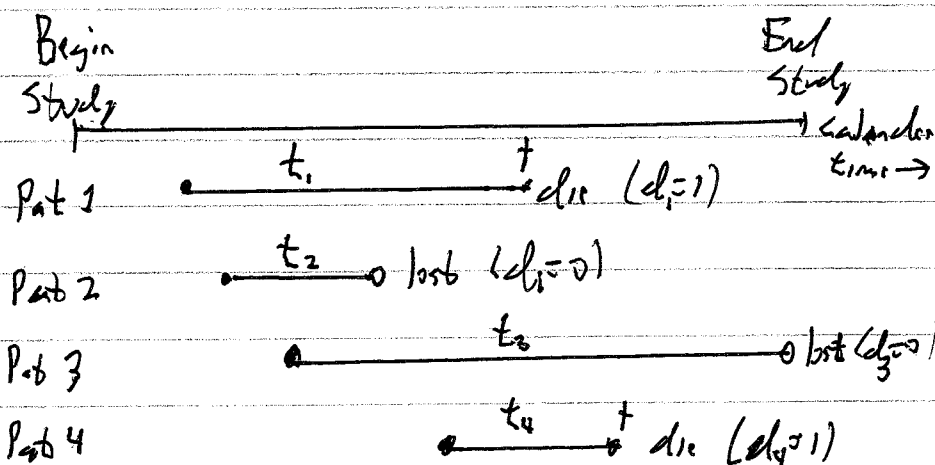 Begin
Study
End
Study
calender
time →
Pat 1
t₁
†
die (d₁=1)
Pat 2
t₂
lost (d₁=0)
Pat 3
t₃
lost (d₃=0)
Pat 4
t₄
†
die (d₄=1)